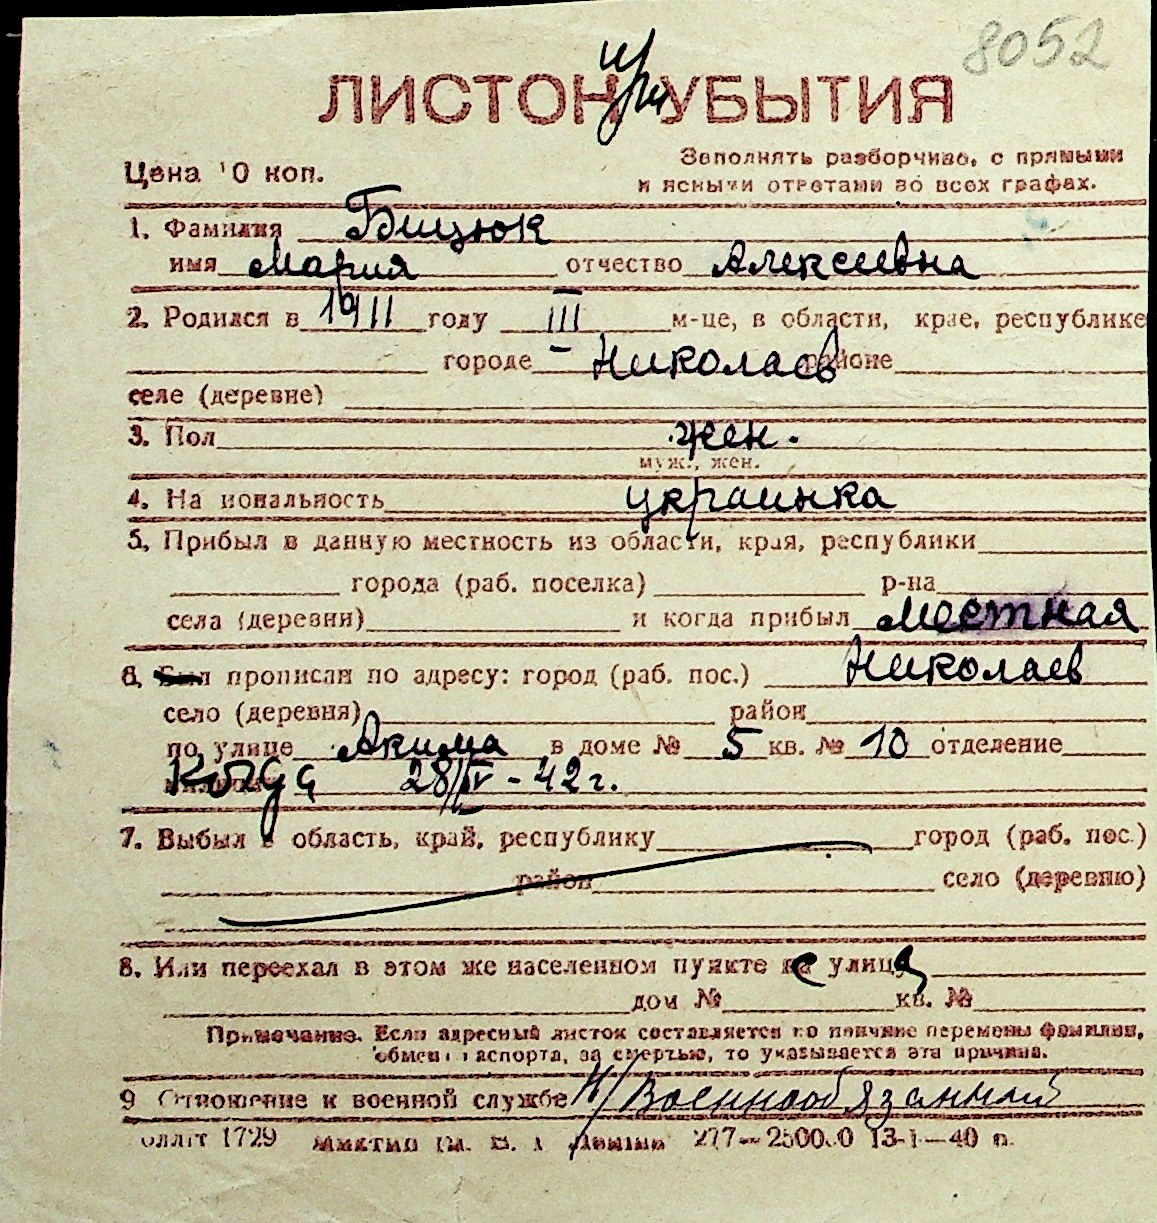 8052
ЛИСТОК при УБЫТИЯ
Цена 10 коп.
Заполнять разборчиво, с прямыми
и ясными ответами во всех графах.
1. Фамилия Бицюк
имя Мария отчество Алексеевна
2. Родился в 1911 году III м-це, в области, крае, республике
городе - Николаев районе
селе (деревне)
3. Пол жен.
муж., жен.
4. Национальность украинка
5. Прибыл в данную местность из области, края, республики
города (раб. поселка) р-на
села (деревни) и когда прибыл местная
6. Был прописан по адресу: город (раб. пос.) Николаев
село (деревня) район
по улице Акима в доме № 5 кв. № 10 отделение
когда 28/IV - 42 г.
7. Выбыл в область, край, республику город (раб. пос.)
район село (деревню)
8. Или переехал в этом же населенном пункте с улица
дом № кв. №
Примечание. Если адресный листок составляется по причине перемены фамилии,
обмена паспорта, за смертью, то указывается эта причина.
9 Отношение к военной службе н/Военнообязанный
1729 им. В. И. Ленина 277— 13-1—40 г.